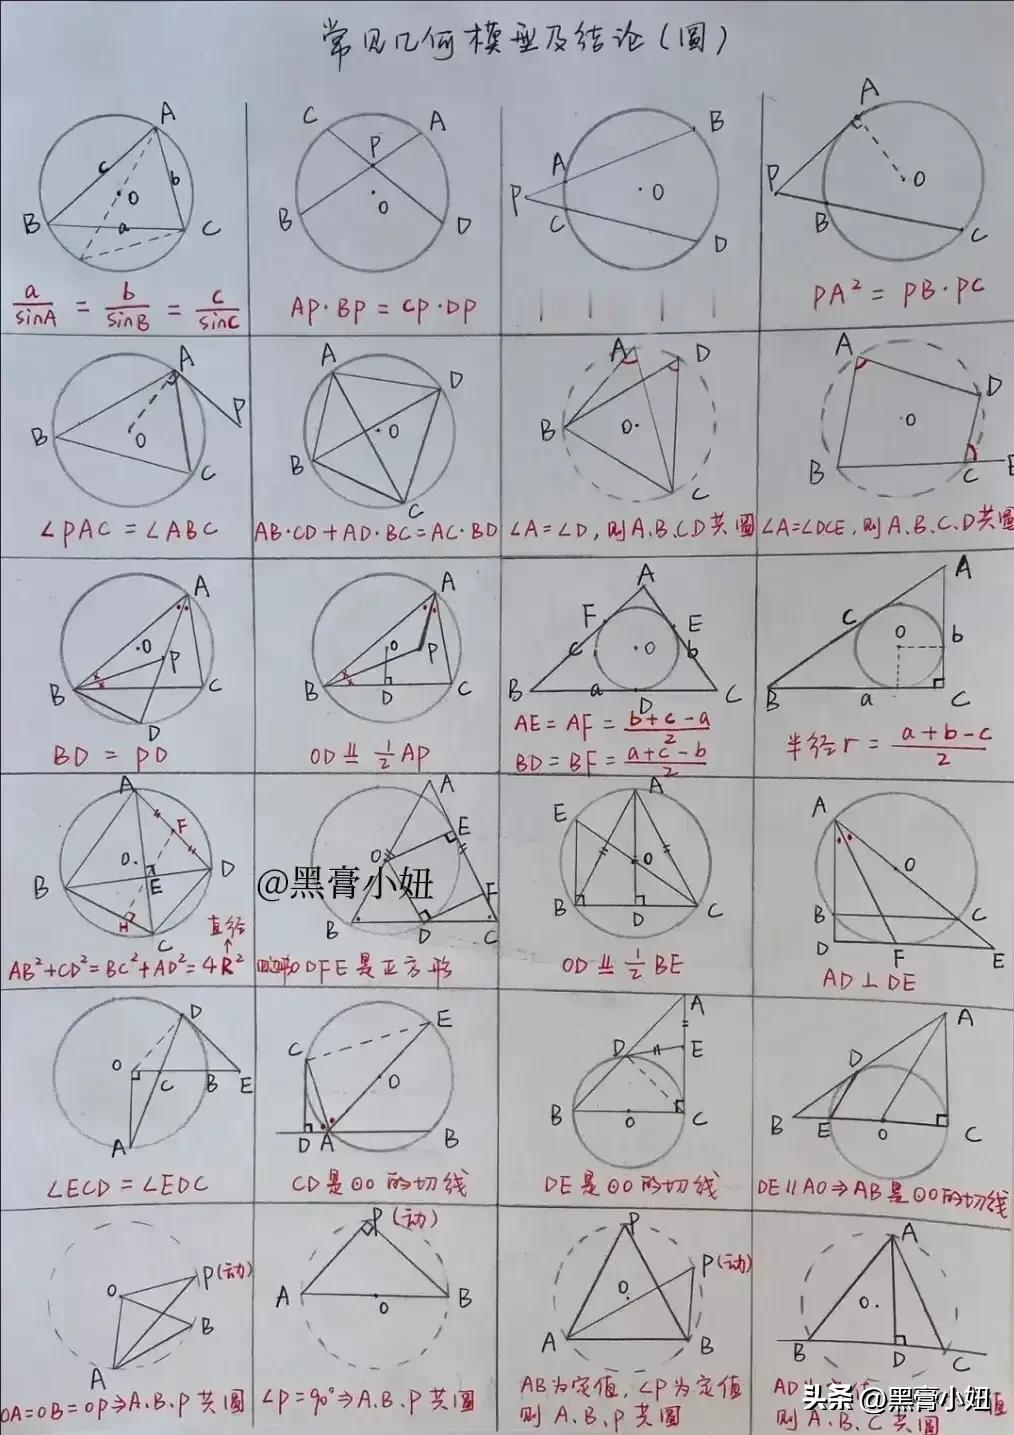 常见几何模型及结论(圆)
A
c
b
O
B
a
C
a/sinA = b/sinB = c/sinC
C
A
P
O
B
D
AP·BP = CP·DP
B
A
P
O
C
D
A
P
O
B
C
PA² = PB·PC
A
P
B
O
C
∠PAC = ∠ABC
A
D
O
B
C
AB·CD+AD·BC=AC·BD
A
D
B
O
C
∠A=∠D,则A.B.CD共圆
A
D
O
B
C
E
∠A=∠DCE,则A.B.C.D共圆
A
O
P
B
C
D
BD = PD
A
O
P
B
D
C
OD ⫫ 1/2 AP
A
F
E
c
O
b
B
a
D
C
AE = AF = b+c-a/2
BD = BF = a+c-b/2
A
c
O
b
B
a
C
半径r = a+b-c/2
A
F
O
B
E
D
H
C
直径
AB²+CD²=BC²+AD²=4R²
A
E
O
F
B
D
C
@黑膏小妞
DFE是正方形
A
E
O
B
D
C
OD ⫫ 1/2 BE
A
O
B
C
D
F
E
AD⊥DE
D
O
C
B
E
A
∠ECD = ∠EDC
E
C
O
D
A
B
CD是⊙O的切线
A
D
E
B
O
C
DE是⊙O的切线
A
D
B
E
O
C
DE∥AO⇒AB是⊙O的切线
O
P(动)
B
A
OA=OB=OP⇒A.B.P共圆
P(动)
A
O
B
∠P=90°⇒A.B.P共圆
P
P(动)
O
A
B
AB为定值,∠P为定值
则A.B.P共圆
A
O
B
D
C
AD为
值
则A.B.C共圆
头条@黑膏小妞